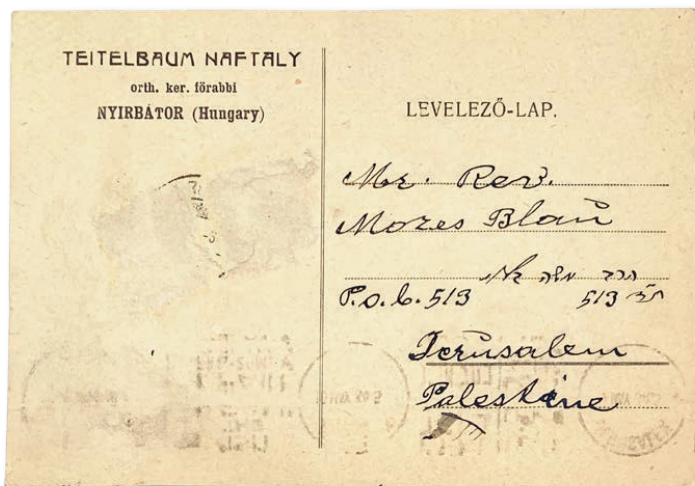 TEITELBAUM NAFTALY
orth. ker. főrabbi
NYIRBÁTOR (Hungary)
LEVELEZŐ-LAP.
Mr. Rev.
Mozes Blau
הרב משה
P.o.b. 513
513
Jerusalem
Palestine